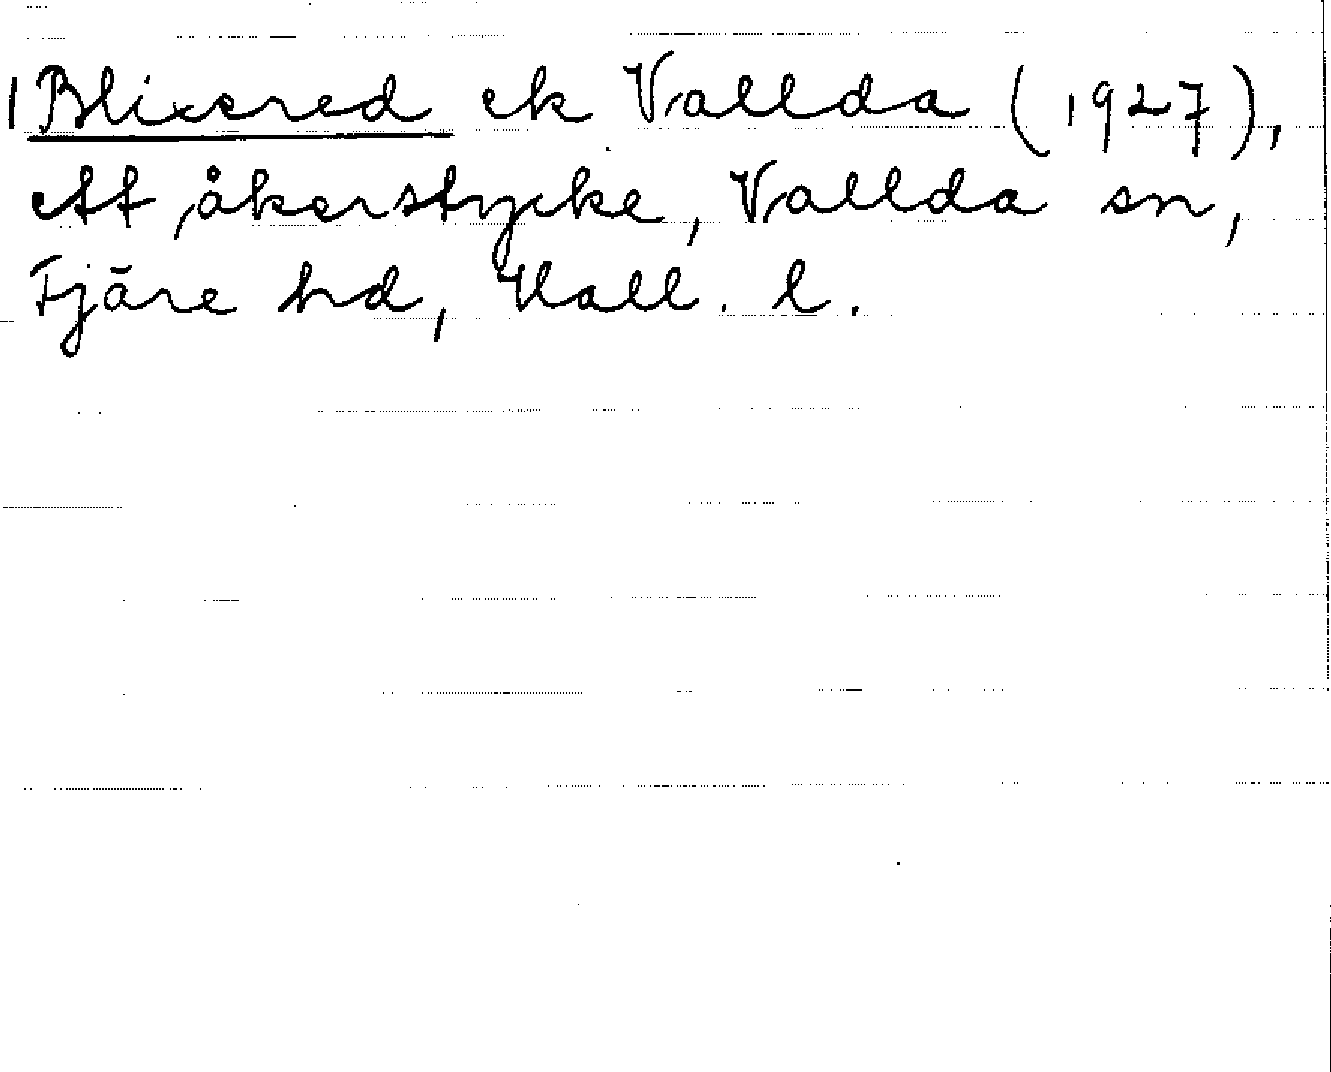 Blixered ek Vallda (1927),
ett åkerstycke, Vallda sn,
Fjäre hd, Hall. l.